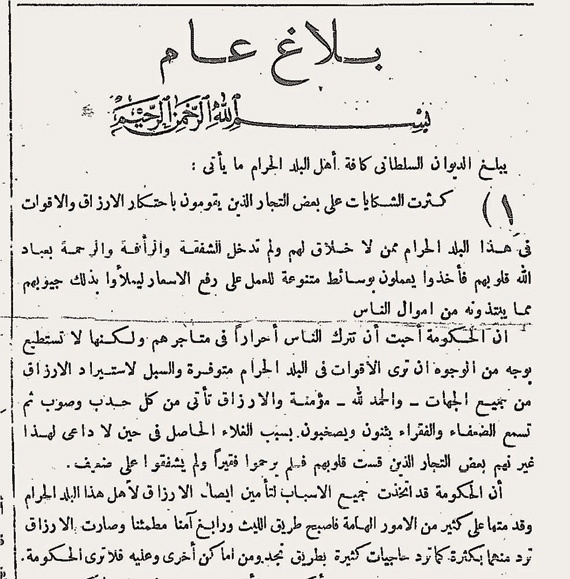 بلاغ عام
بسم الله الرحمن الرحيم
يبلغ الديوان السلطانى كافة أهل البلد الحرام ما يأتى :
١) كثرت الشكايات على بعض التجار الذين يقومون باحتكار الارزاق والاقوات
فى هذا البلد الحرام ممن لا خلاق لهم ولم تدخل الشفقة والرأفة والرحمة بعباد
الله قلوبهم فأخذوا يعملون بوسائط متنوعة للعمل على رفع الاسعار ليملأوا بذلك جيوبهم
مما يبتذونه من اموال الناس
ان الحكومة أحبت أن تترك الناس أحراراً فى متاجرهم ولكنها لا تستطيع
بوجه من الوجوه ان ترى الاقوات فى البلد الحرام متوفرة والسبل لاستيراد الارزاق
من جميع الجهات ــ والحمد لله ــ مؤمنة والارزاق تأتى من كل حدب وصوب ثم
تسمع الضعفاء والفقراء يئنون ويصخبون بسبب الغلاء الحاصل فى حين لا داعى لهذا
غير نهم بعض التجار الذين قست قلوبهم فلم يرحموا فقيراً ولم يشفقوا على ضعيف .
أن الحكومة قد اتخذت جميع الاسباب لتأمين ايصال الارزاق لأهل هذا البلد الحرام
وقدمتها على كثير من الامور الهامة فاصبح طريق الليث ورابغ آمنا مطمئنا وصارت الارزاق
ترد منهما بكثرة كما ترد حاجيات كثيرة بطريق نجد ومن اماكن أخرى وعليه فلا ترى الحكومة.